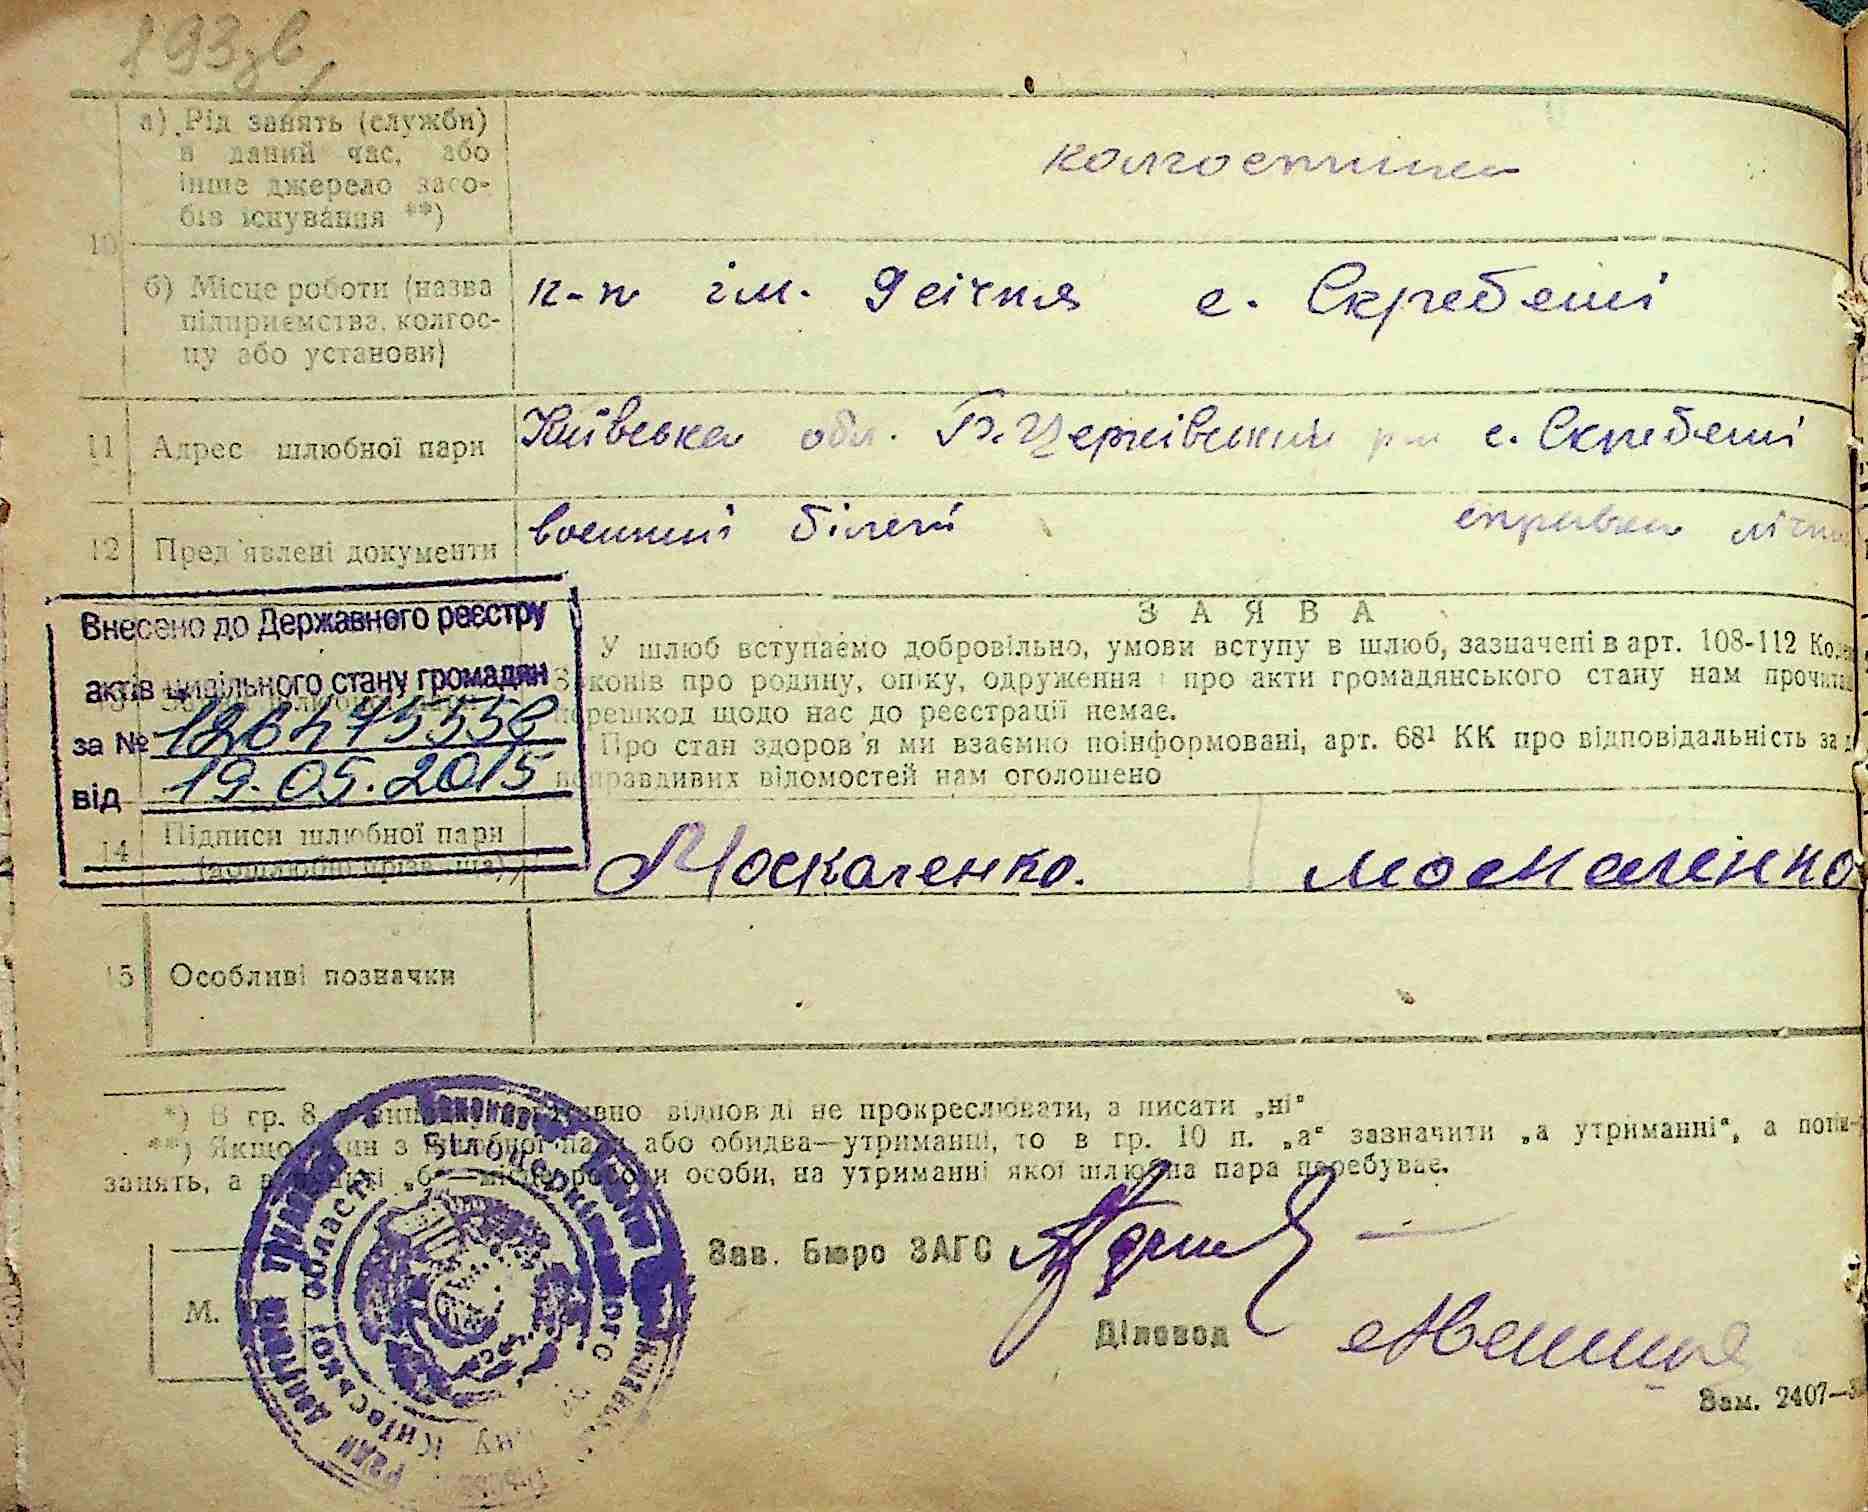 193зв
10
а) Рід занять (служби)
в даний час, або
інше джерело засо-
бів існування **)
колгоспники
б) Місце роботи (назва
підприємства, колгос-
пу або установи)
к-п ім. 9 січня с. Скребеші
11 Адрес шлюбної пари
Київська обл. Б. Церківський р-н с. Скребеші
12 Пред'явлені документи
воєнний білет справка лічн
Внесено до Державного реєстру
актів цивільного стану громадян
за №
від 19.05.2015
З А Я В А
У шлюб вступаємо добровільно, умови вступу в шлюб, зазначені в арт. 108-112
конів про родину, опіку, одруження і про акти громадянського стану нам
решкод щодо нас до реєстрації немає.
Про стан здоров'я ми взаємно поінформовані, арт. 68¹ КК про відповідальність за
правдивих відомостей нам оголошено
14 Підписи шлюбної пари
Москаленко. Москаленко
15 Особливі позначки
*) В гр. 8 відповіді не прокреслювати, а писати „ні"
**) Якщо один з шлюбної пари або обидва—утриманці, то в гр. 10 п. „а" зазначити „а утриманні", а
занять, а роботи особи, на утриманні якої шлюбна пара перебуває.
Зав. бюро ЗАГС
М.
Діловод
Зам. 2407—
Білоцерківського
Київської області